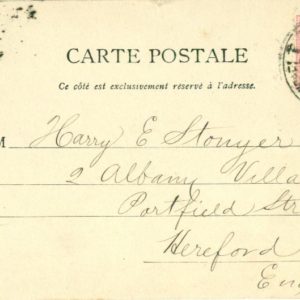 CARTE POSTALE
Ce côté est exclusivement réservé à l'adresse.
M Harry E Stonyer
2 Albany Villa
Portfield Str
Hereford
Eng